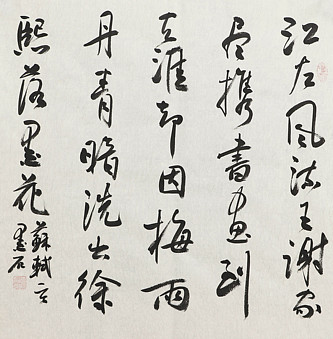 江左風流王謝家
尽携書画到
天涯却因梅雨
丹青暗洗出徐
熙落墨花
蘇軾
墨石